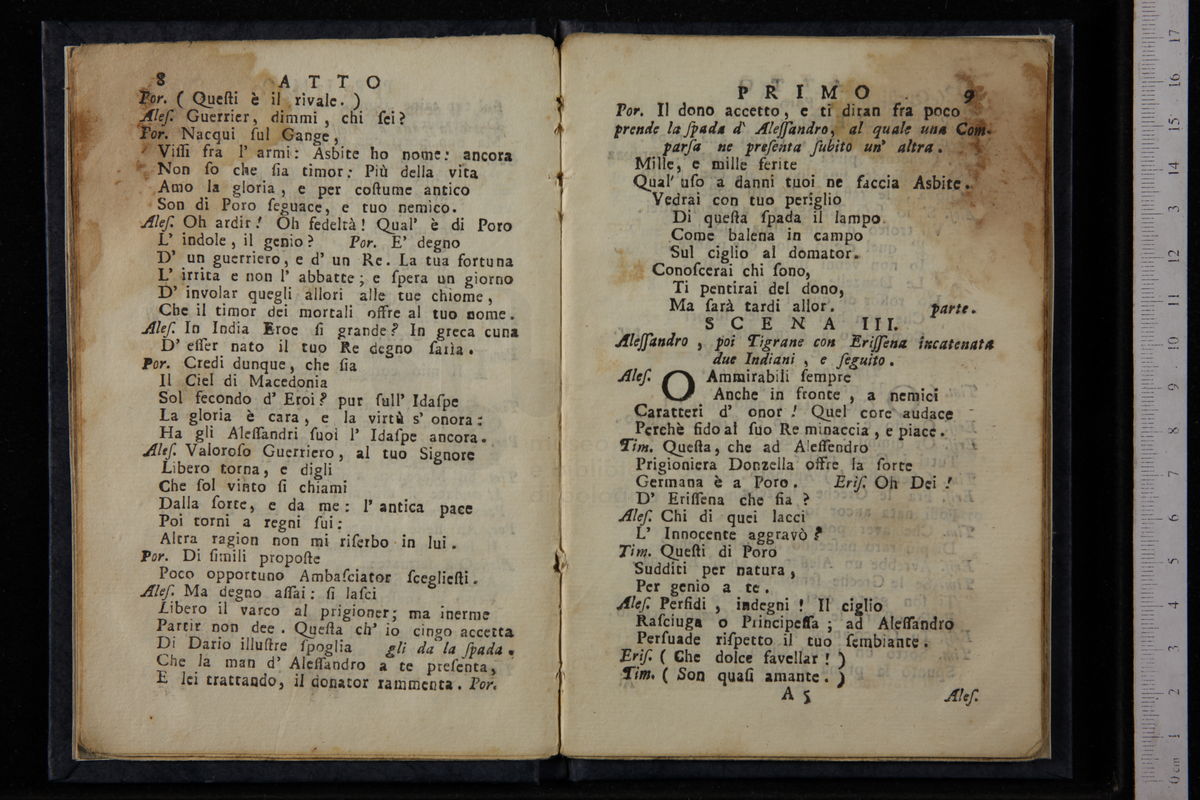 8 ATTO
Por. ( Queſti è il rivale. )
Aleſ. Guerrier, dimmi, chi ſei?
Por. Nacqui ſul Gange,
Viſſi fra l' armi: Asbite ho nome: ancora
Non ſo che ſia timor: Più della vita
Amo la gloria, e per coſtume antico
Son di Poro ſeguace, e tuo nemico.
Aleſ. Oh ardir! Oh fedeltà! Qual' è di Poro
L' indole, il genio? Por. E' degno
D' un guerriero, e d' un Re. La tua fortuna
L' irrita e non l' abbatte; e ſpera un giorno
D' involar quegli allori alle tue chiome,
Che il timor dei mortali offre al tuo nome.
Aleſ. In India Eroe ſi grande? In greca cuna
D' eſſer nato il tuo Re degno ſaria.
Por. Credi dunque, che ſia
Il Ciel di Macedonia
Sol fecondo d' Eroi? pur ſull' Idaſpe
La gloria è cara, e la virtù s' onora:
Ha gli Aleſſandri ſuoi l' Idaſpe ancora.
Aleſ. Valoroſo Guerriero, al tuo Signore
Libero torna, e digli
Che ſol vinto ſi chiami
Dalla ſorte, e da me: l' antica pace
Poi torni a regni ſui:
Altra ragion non mi riſerbo in lui.
Por. Di ſimili propoſte
Poco opportuno Ambaſciator ſceglieſti.
Aleſ. Ma degno aſſai: ſi laſci
Libero il varco al prigioner; ma inerme
Partir non dee. Queſta ch' io cingo accetta
Di Dario illuſtre ſpoglia gli da la ſpada.
Che la man d' Aleſſandro a te preſenta,
E lei trattando, il donator rammenta. Por.
PRIMO 9
Por. Il dono accetto, e ti diran fra poco
prende la ſpada d' Aleſſandro, al quale una Com-
parſa ne preſenta ſubito un' altra.
Mille, e mille ferite
Qual' uſo a danni tuoi ne faccia Asbite.
Vedrai con tuo periglio
Di queſta ſpada il lampo
Come balena in campo
Sul ciglio al domator.
Conoſcerai chi ſono,
Ti pentirai del dono,
Ma ſarà tardi allor. parte.
SCENA III.
Aleſſandro, poi Tigrane con Eriſſena incatenata
due Indiani, e ſeguito.
Aleſ. O Ammirabili ſempre
Anche in fronte, a nemici
Caratteri d' onor! Quel core audace
Perchè fido al ſuo Re minaccia, e piace.
Tim. Queſta, che ad Aleſſendro
Prigioniera Donzella offre la ſorte
Germana è a Poro. Eriſ. Oh Dei!
D' Eriſſena che ſia?
Aleſ. Chi di quei lacci
L' Innocente aggravò?
Tim. Queſti di Poro
Sudditi per natura,
Per genio a te.
Aleſ. Perfidi, indegni! Il ciglio
Raſciuga o Principeſſa; ad Aleſſandro
Perſuade riſpetto il tuo ſembiante.
Eriſ. ( Che dolce favellar! )
Tim. ( Son quaſi amante. )
A 5 Aleſ.
17
16
15
14
13
12
11
10
9
8
7
6
5
4
3
2
1
0 cm